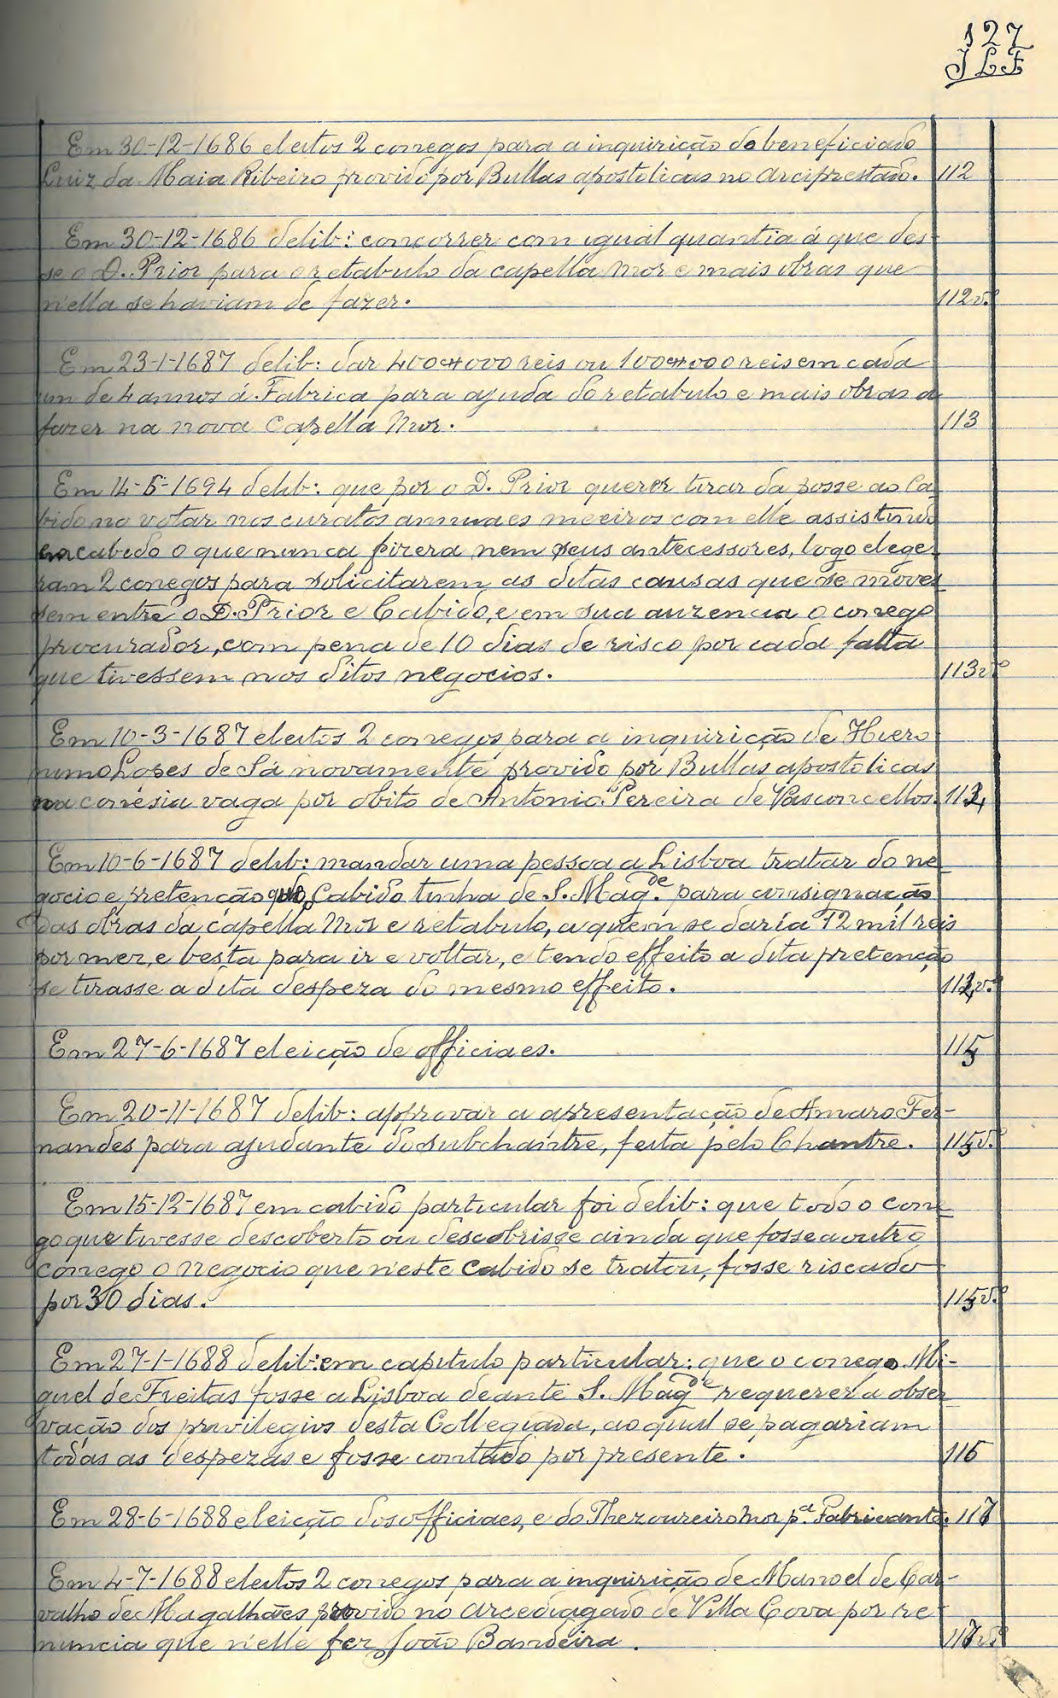 127
JLF
Em 30-12-1686 eleitos 2 conegos para a inquirição do beneficiado
Luiz da Maia Ribeiro provido por Bullas apostolicas no Arciprestado. 112
Em 30-12-1686 delib: concorrer com igual quantia á que des-
se o D. Prior para o retabulo da capella mor e mais obras que
n'ella se haviam de fazer. 112v.º
Em 23-1-1687 delib: dar 400#000 reis ou 100#000 reis em cada
um de 4 annos á Fabrica para ajuda do retabulo e mais obras a
fazer na nova Capella Mor. 113
Em 14-5-1694 delib: que por o D. Prior querer tirar da posse ao Ca-
bido no votar nos curatos annuaes meeiros com elle assistindo
em cabido o que nunca fizera nem seus antecessores, logo elege-
ram 2 conegos para solicitarem as ditas causas que se moves-
sem entre o D. Prior e Cabido, e em sua auzencia o conego
procurador, com pena de 10 dias de risco por cada falta
que tivessem nos ditos negocios. 113v.º
Em 10-3-1687 eleitos 2 conegos para a inquirição de Hiero
nimo Lopes de Sá novamente provido por Bullas apostolicas
na conésia vaga por obito de Antonio Pereira de Vasconcellos. 114
Em 10-6-1687 delib: mandar uma pessoa a Lisboa tratar do ne-
gocio e pretenção que o Cabido tinha de S. Mag.de para consignação
das obras da capella Mor e retabulo, a quem se daria 12 mil reis
por mez, e besta para ir e voltar, e tendo effeito a dita pretenção
se tirasse a dita despeza do mesmo effeito. 114v.º
Em 27-6-1687 eleição de officiaes. 115
Em 20-11-1687 delib: approvar a apresentação de Amaro Fer-
nandes para ajudante do subchantre, feita pelo Chantre. 115v.º
Em 15-12-1687 em cabido particular foi delib: que todo o cone-
go que tivesse descoberto ou descobrisse ainda que fosse a outro
conego o negocio que n'este Cabido se tratou, fosse riscado
por 30 dias. 115v.º
Em 27-1-1688 delib: em capitulo particular: que o conego Mi-
guel de Freitas fosse a Lisboa deante S. Mag.de requerer a obser-
vação dos privilegios desta Collegiada, ao qual se pagariam
todas as despezas e fosse contado por presente. 116
Em 28-6-1688 eleição dos officiaes, e do Thezoureiro Mor p.a Fabricante. 117
Em 4-7-1688 eleitos 2 conegos para a inquirição de Manoel de Car-
valho de Magalhães provido no arcediagado de Villa Cova por re-
nuncia que n'elle fez João Bandeira. 117v.º